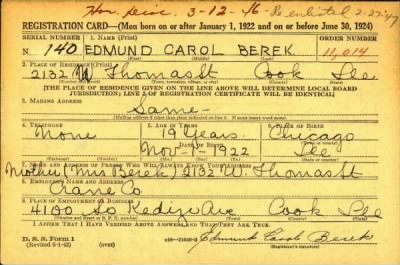 Hon. Disc. 3-12-46 - Re enlisted 2-27-47
REGISTRATION CARD—(Men born on or after January 1, 1922 and on or before June 30, 1924)
SERIAL NUMBER 1. NAME (Print) ORDER NUMBER
N 140 EDMUND CAROL BEREK 11,014
(First) (Middle) (Last)
2. PLACE OF RESIDENCE (Print)
2132 W Thomas St Cook Ill
[THE PLACE OF RESIDENCE GIVEN ON THE LINE ABOVE WILL DETERMINE LOCAL BOARD
JURISDICTION; LINE 2 OF REGISTRATION CERTIFICATE WILL BE IDENTICAL]
3. MAILING ADDRESS
Same
[Mailing address if other than place indicated on line 2. If same insert word same]
4. TELEPHONE 5. AGE IN YEARS 6. PLACE OF BIRTH
None 19 years. Chicago
DATE OF BIRTH
Nov-1-1922 Ill
(Exchange) (Number) (Mo.) (Day) (Yr.) (State or country)
7. NAME AND ADDRESS OF PERSON WHO WILL ALWAYS KNOW YOUR ADDRESS
Mother (Mrs Berek) 2132 W Thomas St
8. EMPLOYER'S NAME AND ADDRESS
Crane Co
9. PLACE OF EMPLOYMENT OR BUSINESS
4100 So Kedzie Ave Cook Ill
(Number and street or R. F. D. number) (Town) (County) (State)
I AFFIRM THAT I HAVE VERIFIED ABOVE ANSWERS AND THAT THEY ARE TRUE.
D. S. S. Form 1
(over) Edmund Carol Berek
(Registrant's signature)